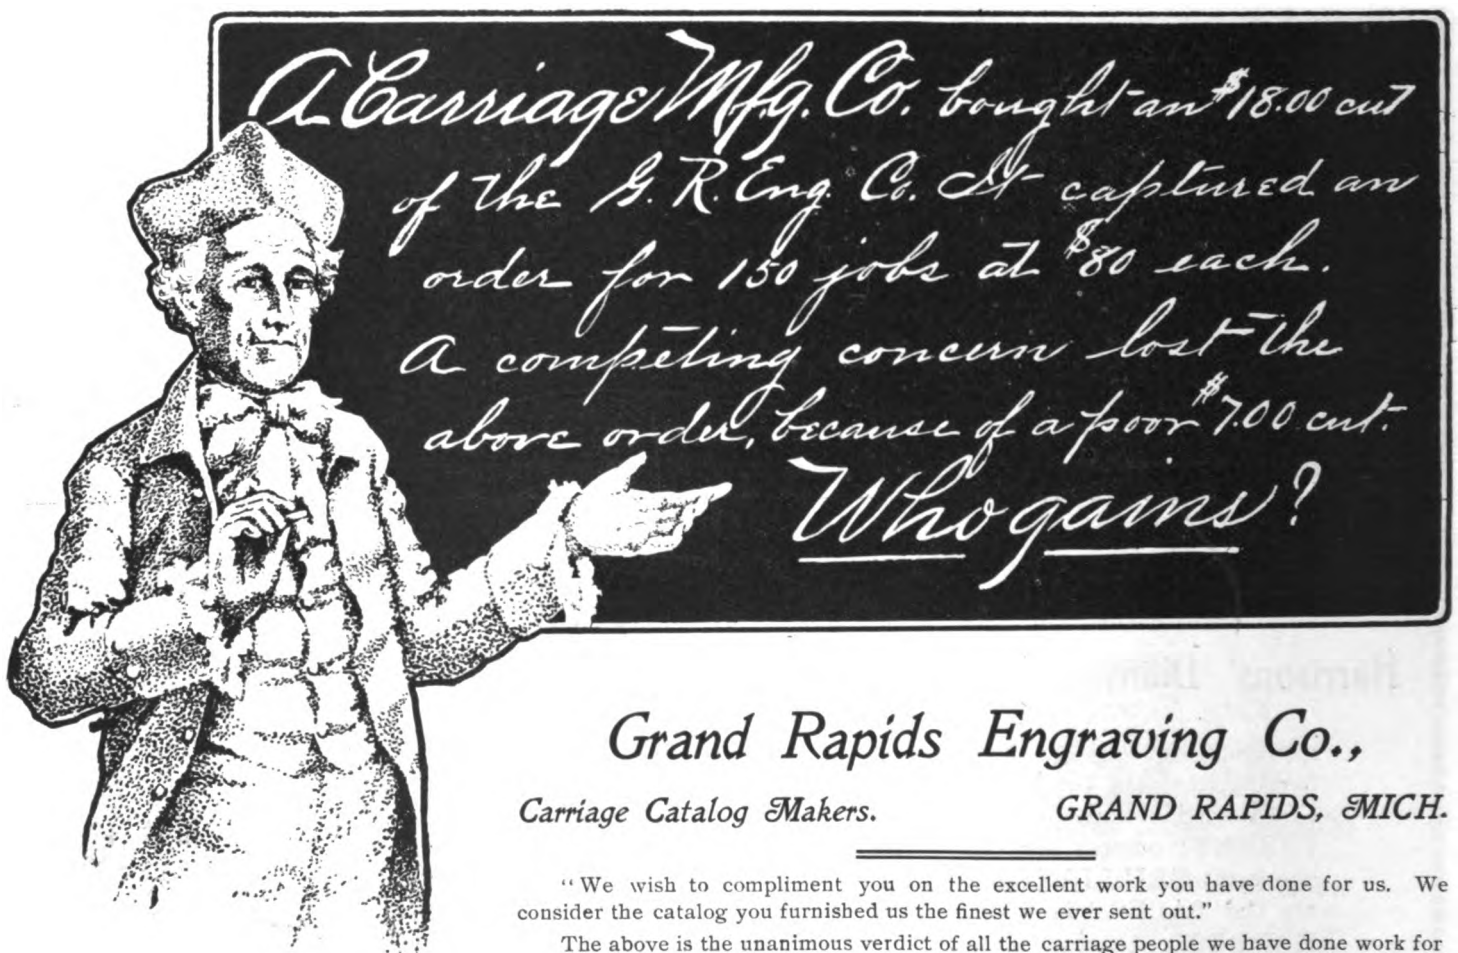 A Carriage Mfg. Co. bought an $18.00 cut
of the G. R. Eng. Co. It captured an
order for 150 jobs at $80 each.
A competing concern lost the
above order, because of a poor $7.00 cut.
Who gains?
Grand Rapids Engraving Co.,
Carriage Catalog Makers. GRAND RAPIDS, MICH.
“We wish to compliment you on the excellent work you have done for us. We
consider the catalog you furnished us the finest we ever sent out.”
The above is the unanimous verdict of all the carriage people we have done work for